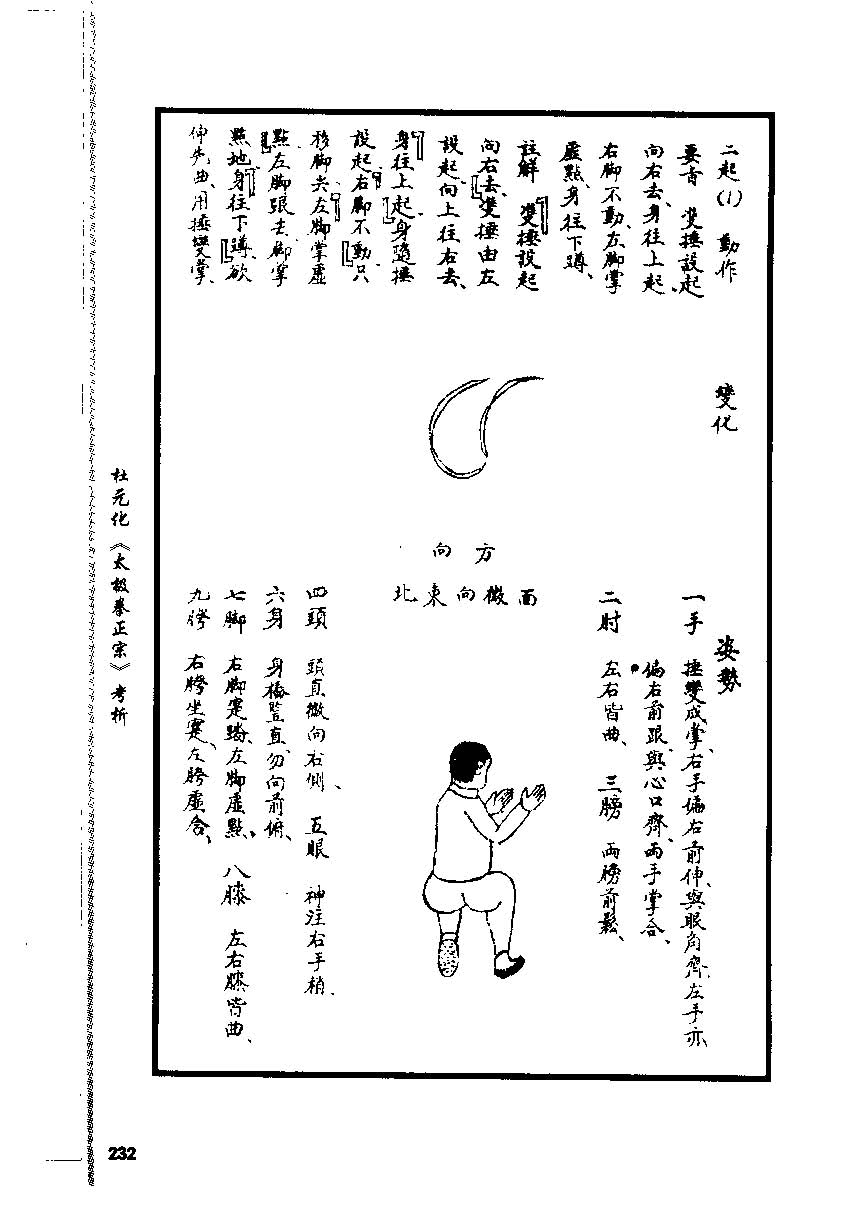 二起(1) 動作
要言 雙捶設起
向右去、身往上起、
右脚不動、左脚掌
虛點、身往下蹲、
註解 『雙捶設起
向右去』、雙捶由左
設起向上往右去、
『身往上起』、身隨捶
設起、『右脚不動』、只
移脚尖、『左脚掌虛
點』、左脚張去、脚掌
點地、『身往下蹲』、欲
伸先曲、用捶變掌、
變化
方向
面微向東北
姿勢
一手 捶變成掌、右手偏右前伸、與眼角齊、左手亦
偏右前跟、與心口齊、兩手掌合、
二肘 左右皆曲、 三膀 兩膀前鬆、
四頭 頭直微向右側、 五眼 神注右手梢、
六身 身樁豎直、勿向前俯、
七脚 右脚寔踏、左脚虛點、 八膝 左右膝皆曲、
九胯 右胯坐寔、左胯虛含、
杜元化《太极拳正宗》考析
232